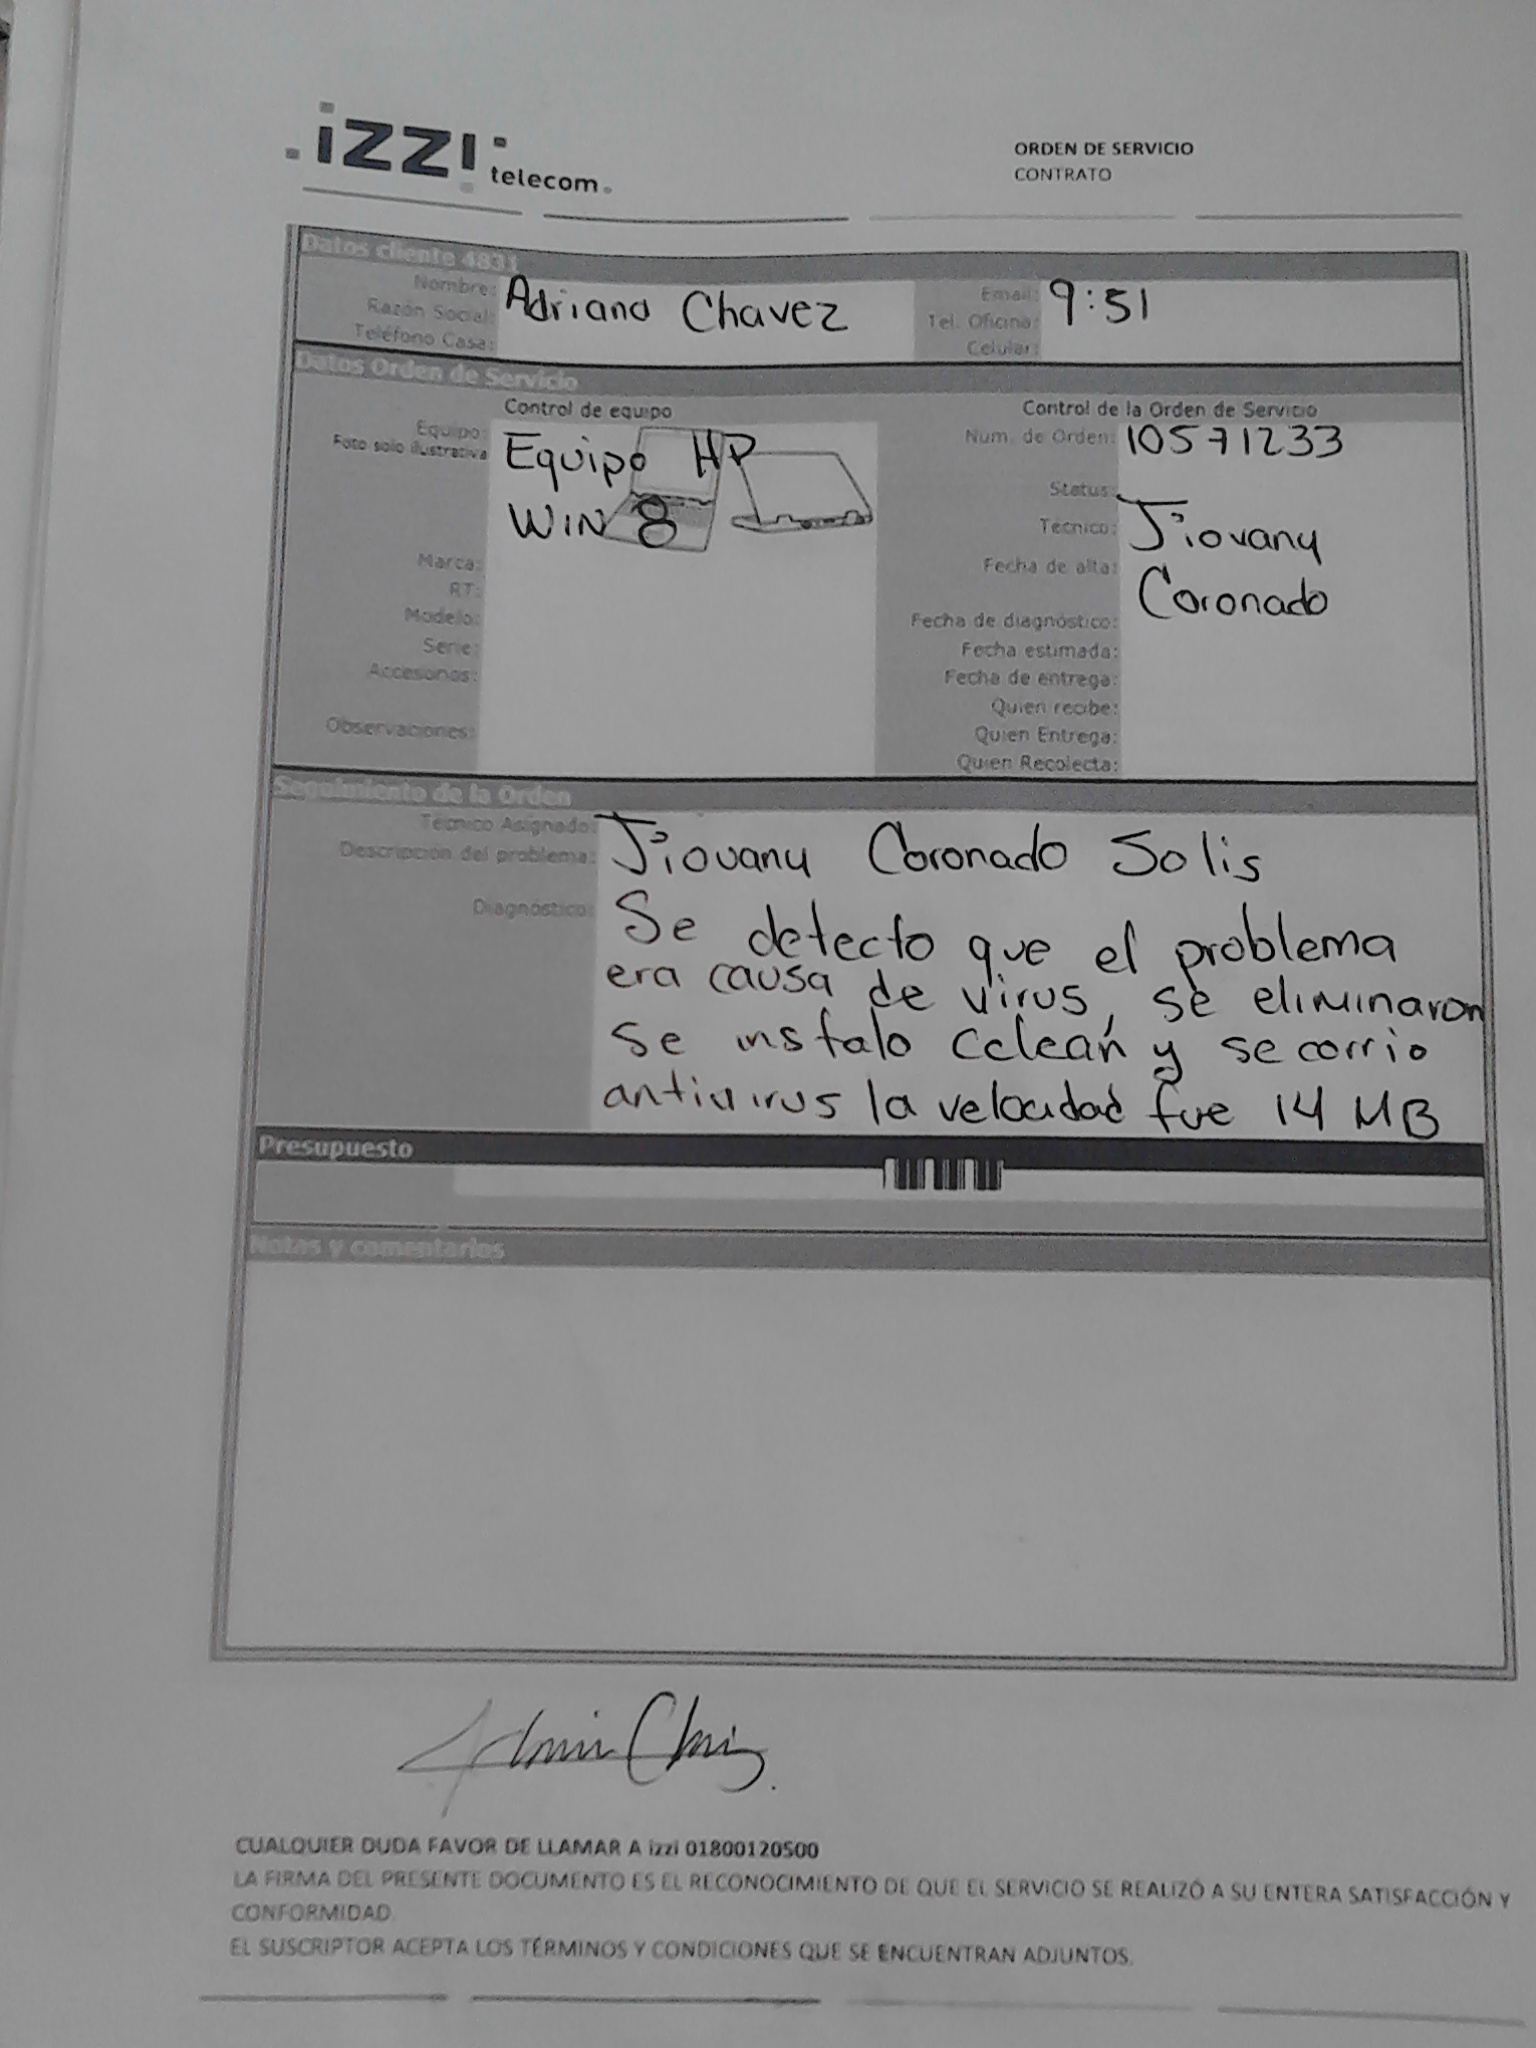 izzi telecom
ORDEN DE SERVICIO
CONTRATO
Datos cliente 4831
Nombre: Adriano Chavez
Razón Social:
Teléfono Casa:
Email: 9:51
Tel. Oficina:
Celular:
Datos Orden de Servicio
Control de equipo
Equipo: Equipo HP
Foto solo ilustrativa
WIN 8
Marca:
RT:
Modelo:
Serie:
Accesorios:
Observaciones:
Control de la Orden de Servicio
Num. de Orden: 10571233
Status:
Técnico: Jiovany
Fecha de alta: Coronado
Fecha de diagnóstico:
Fecha estimada:
Fecha de entrega:
Quien recibe:
Quien Entrega:
Quien Recolecta:
Seguimiento de la Orden
Técnico Asignado:
Descripción del problema: Jiovany Coronado Solis
Diagnóstico: Se detecto que el problema
era causa de virus, se eliminaron
se instalo Cclean y se corrio
antivirus la velocidad fue 14 MB
Presupuesto
Notas y comentarios
CUALQUIER DUDA FAVOR DE LLAMAR A izzi 01800120500
LA FIRMA DEL PRESENTE DOCUMENTO ES EL RECONOCIMIENTO DE QUE EL SERVICIO SE REALIZÓ A SU ENTERA SATISFACCIÓN Y
CONFORMIDAD.
EL SUSCRIPTOR ACEPTA LOS TÉRMINOS Y CONDICIONES QUE SE ENCUENTRAN ADJUNTOS.